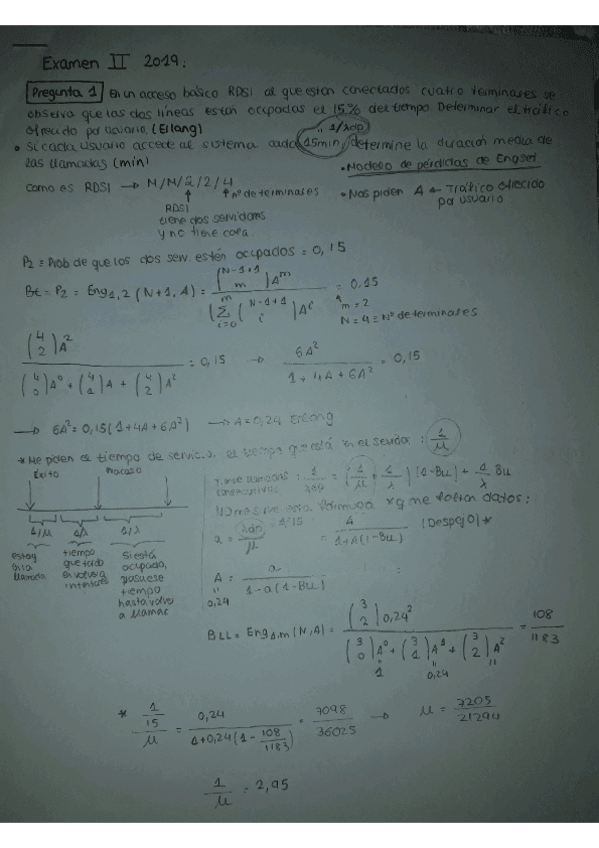 Examen II 2019:
Pregunta 1 En un acceso básico RDSI al que están conectados cuatro terminales se
observa que las dos líneas están ocupadas el 15% del tiempo. Determinar el tráfico
ofrecido por usuario. (Erlang)
" 1/λdp
• Si cada usuario accede al sistema cada 15min, determine la duración media de
las llamadas (min)
• Modelo de pérdidas de Engset
como es RDSI → M/M/2/2/4
nº de terminales
• Nos piden A ← Tráfico ofrecido
por usuario
RDSI
tiene dos servidores
y no tiene cola.
P2 = Prob de que los dos serv. estén ocupados = 0,15
Bt = P2 = Eng1,2 (N+1, A) = (N-1+1 m) A^m / (Σ i=0 m (N-1+1 i) A^i) = 0,15
m = 2
N = 4 = Nº de terminales
(4 2)A² / ((4 0)A⁰ + (4 1)A + (4 2)A²) = 0,15 → 6A² / (1 + 4A + 6A²) = 0,15
→ 6A² = 0,15(1+4A+6A²) → A = 0,24 Erlang
* Me piden el tiempo de servicio, el tiempo que está en el servidor : 1/μ
Éxito
fracaso
1/μ
1/λ
1/λ
estoy
en la
llamada
tiempo
que tardo
en volver a
intentarlo
Si está
ocupado,
tiempo
hasta volver
a llamar
: 1/λdp = (1/μ + 1/λ) (1-BLL) + 1/λ BLL
fórmula xq me faltan datos:
a = λdp / μ = A / (1+A(1-BLL)) (Despejo) *
1/15
A = a / (1-a(1-BLL))
"
0,24
BLL = Eng1,m (N,A) = (3 2) 0,24² / ((3 0)A⁰ + (3 1)A¹ + (3 2)A²) = 108/1183
1
0,24
* (1/15)/μ = 0,24 / (1+0,24(1 - 108/1183)) = 7098/36025 → μ = 7205/21294
1/μ = 2,95